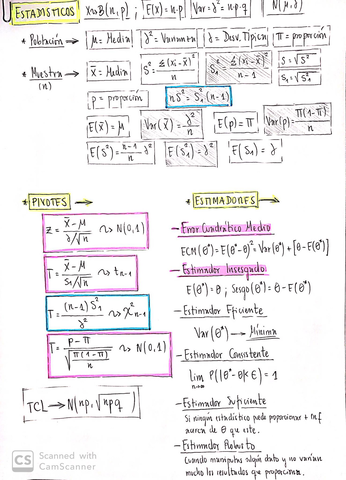 ESTADÍSTICOS X~B(n,p) ; E(X)=n·p Var=σ²=n·p·q N(μ,σ)
* Población → μ=Media σ²=Varianza σ=Desv. Típica π=proporción
* Muestra → x̄=Media S²=Σ(xi-x̄)²/n S₁²=Σ(xi-x̄)²/n-1 S=√S²
(n) S₁=√S₁²
p=proporción nS²=S₁²(n-1)
E(x̄)=μ Var(x̄)=σ²/n E(p)=π Var(p)=π(1-π)/n
E(S²)=n-1/n σ² E(S₁²)=σ² E(S₁)=σ
* PIVOTES →
Z=x̄-μ/σ/√n ~> N(0,1)
T=x̄-μ/S₁/√n ~> tn-1
T=(n-1)S₁²/σ² ~> χ²n-1
T=p-π/√π(1-π)/n ~> N(0,1)
TCL → N(np,√npq)
* ESTIMADORES →
- Error Cuadrático Medio
ECM(θ*)=E(θ*-θ)²=Var(θ*)+[θ-E(θ*)]
- Estimador Insesgado
E(θ*)=θ ; Sesgo(θ*)=θ-E(θ*)
- Estimador Eficiente
Var(θ*) → Mínima
- Estimador Consistente
lim P(|θ*-θ|<ε)=1
n→∞
- Estimador Suficiente
Si ningún estadístico puede proporcionar + inf
acerca de θ que este.
- Estimador Robusto
Cuando manipulas algún dato y no varían
mucho los resultados que proporciona.
CS Scanned with
CamScanner